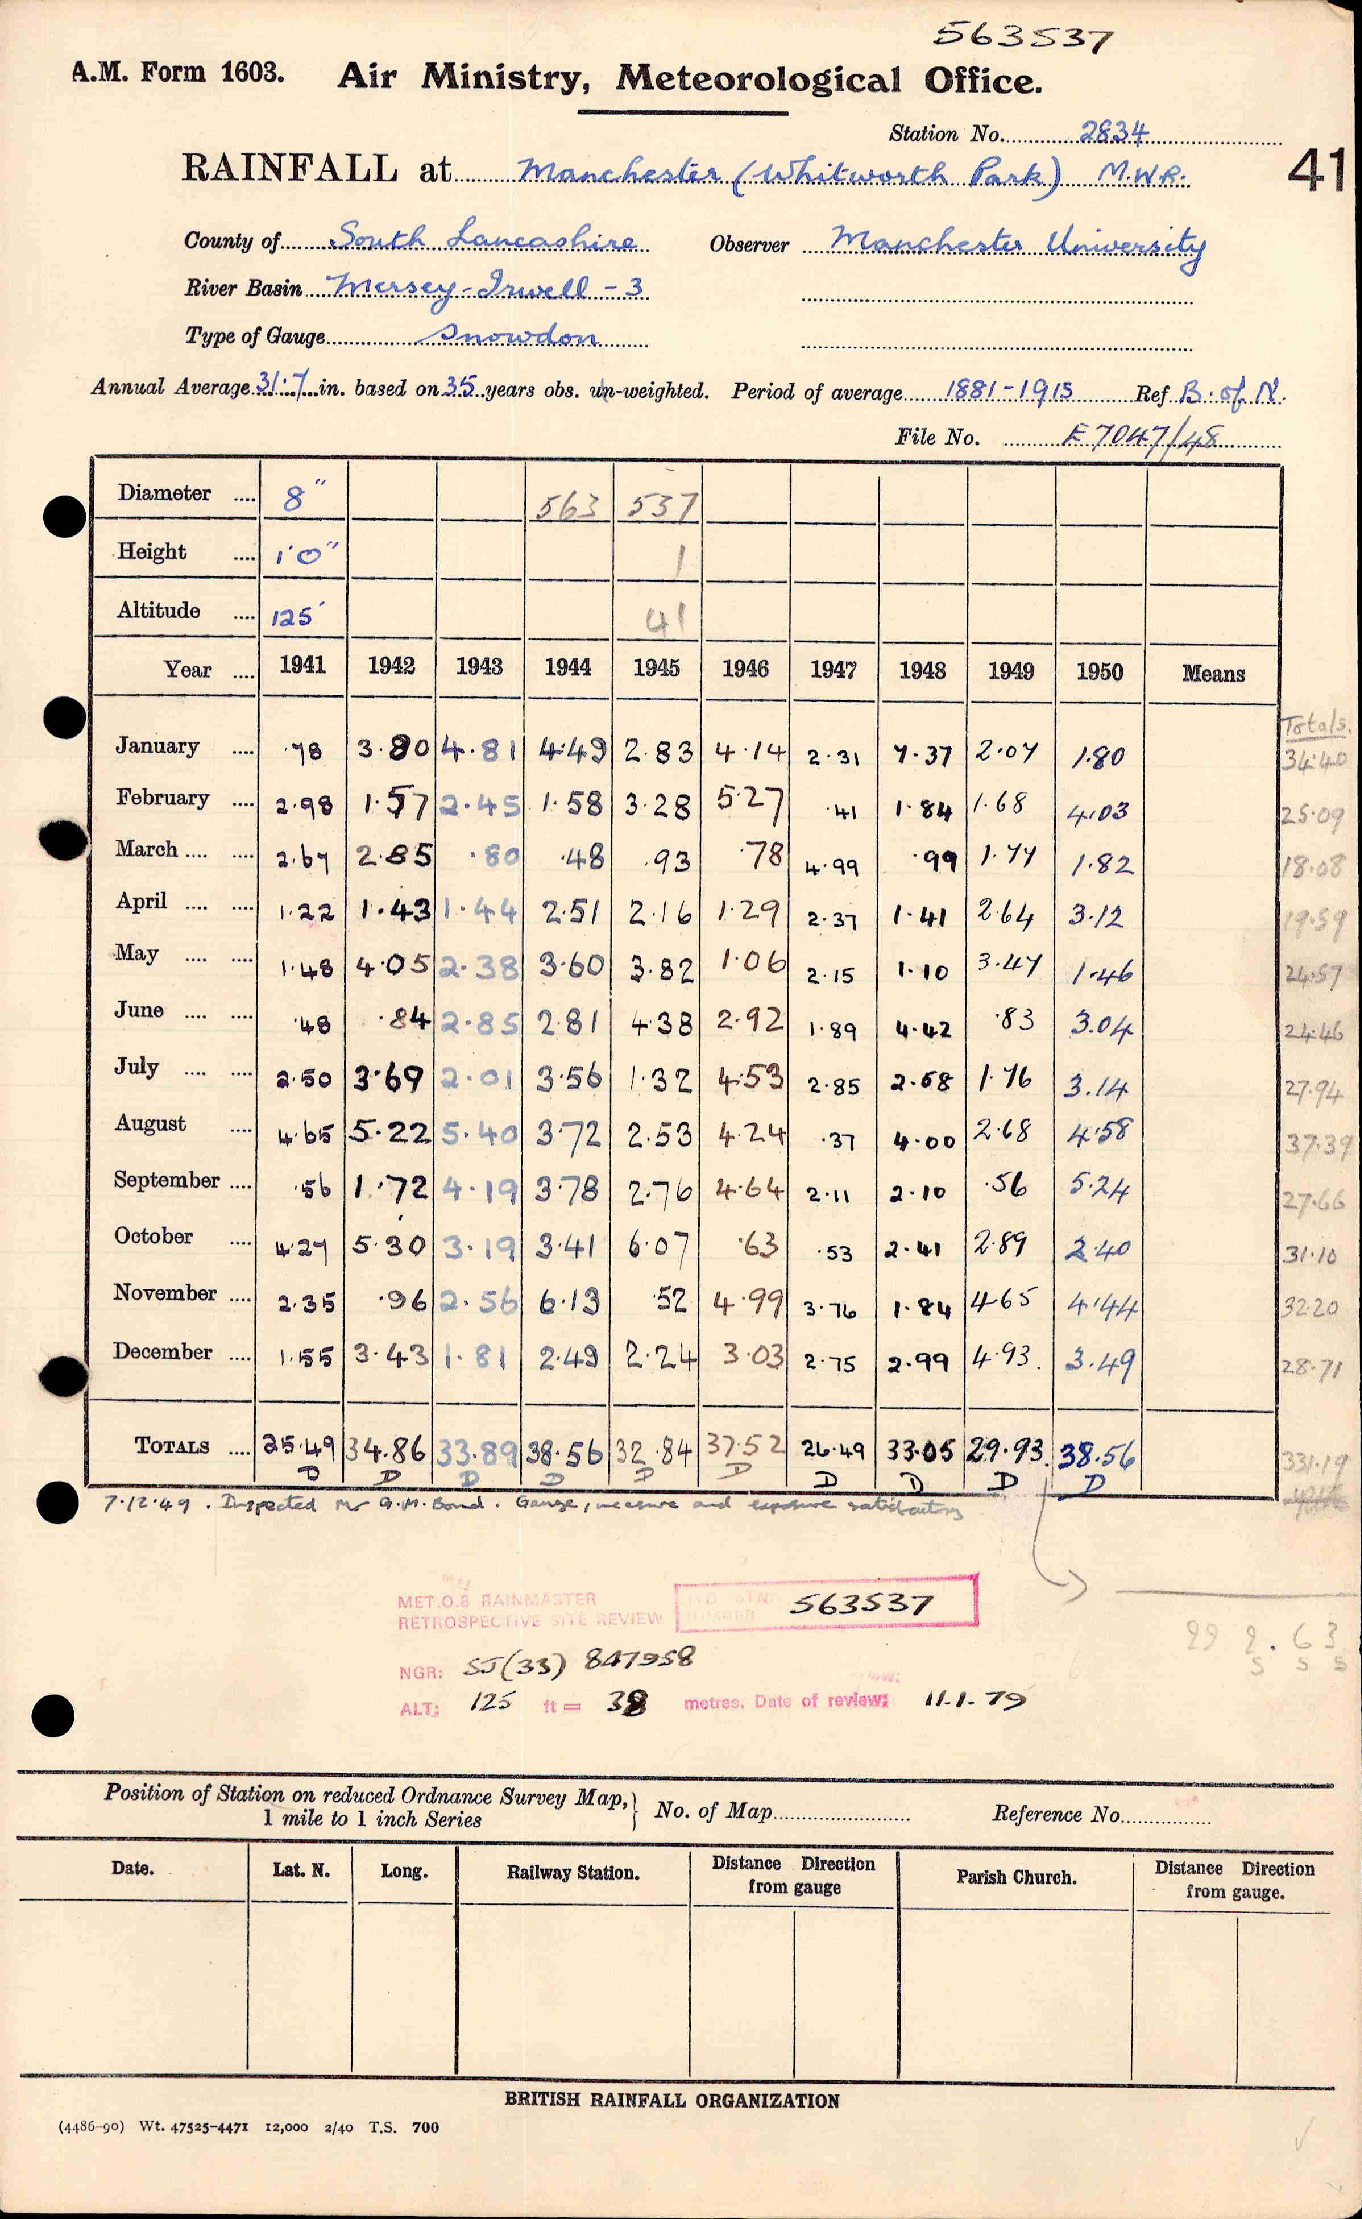 563537
A.M. Form 1603. Air Ministry, Meteorological Office.
Station No. 2834
41
RAINFALL at Manchester (Whitworth Park) M.W.R.
County of South Lancashire Observer Manchester University
River Basin Mersey-Irwell - 3
Type of Gauge Snowdon
Annual Average 31.7 in. based on 35 years obs. un-weighted. Period of average 1881-1915 Ref B. of N.
File No. E 7047/48
Diameter .... 8" 563 537
Height .... 1'0" 1
Altitude .... 125' 41
Year .... 1941 1942 1943 1944 1945 1946 1947 1948 1949 1950 Means
Totals.
January .... .78 3.80 4.81 4.49 2.83 4.14 2.31 7.37 2.07 1.80 34.40
February .... 2.98 1.57 2.45 1.58 3.28 5.27 .41 1.84 1.68 4.03 25.09
March .... .... 2.67 2.85 .80 .48 .93 .78 4.99 .99 1.77 1.82 18.08
April .... .... 1.22 1.43 1.44 2.51 2.16 1.29 2.37 1.41 2.64 3.12 19.59
May .... .... 1.48 4.05 2.38 3.60 3.82 1.06 2.15 1.10 3.47 1.46 24.57
June .... .... .48 .84 2.85 2.81 4.38 2.92 1.89 4.42 .83 3.04 24.46
July .... .... 2.50 3.69 2.01 3.56 1.32 4.53 2.85 2.58 1.76 3.14 27.94
August .... 4.65 5.22 5.40 3.72 2.53 4.24 .37 4.00 2.68 4.58 37.39
September .... .56 1.72 4.19 3.78 2.76 4.64 2.11 2.10 .56 5.24 27.66
October .... 4.27 5.30 3.19 3.41 6.07 .63 .53 2.41 2.89 2.40 31.10
November .... 2.35 .96 2.56 6.13 .52 4.99 3.76 1.84 4.65 4.44 32.20
December .... 1.55 3.43 1.81 2.49 2.24 3.03 2.75 2.99 4.93. 3.49 28.71
TOTALS .... 25.49 34.86 33.89 38.56 32.84 37.52 26.49 33.05 29.93. 38.56 331.19
D D D D D D D D D D
7.12.49. Inspected Mr G.M. Bond. Gauge, measure and exposure satisfactory
MET.O.8 RAINMASTER
RETROSPECTIVE SITE REVIEW
563537
NGR: SJ(33) 847958
ALT: 125 ft = 38 metres. Date of review: 11-1-79
Position of Station on reduced Ordnance Survey Map,
1 mile to 1 inch Series
No. of Map Reference No.
Date. Lat. N. Long. Railway Station. Distance Direction from gauge Parish Church. Distance Direction from gauge.
BRITISH RAINFALL ORGANIZATION
(4486-90) Wt. 47525-4471 12,000 2/40 T.S. 700